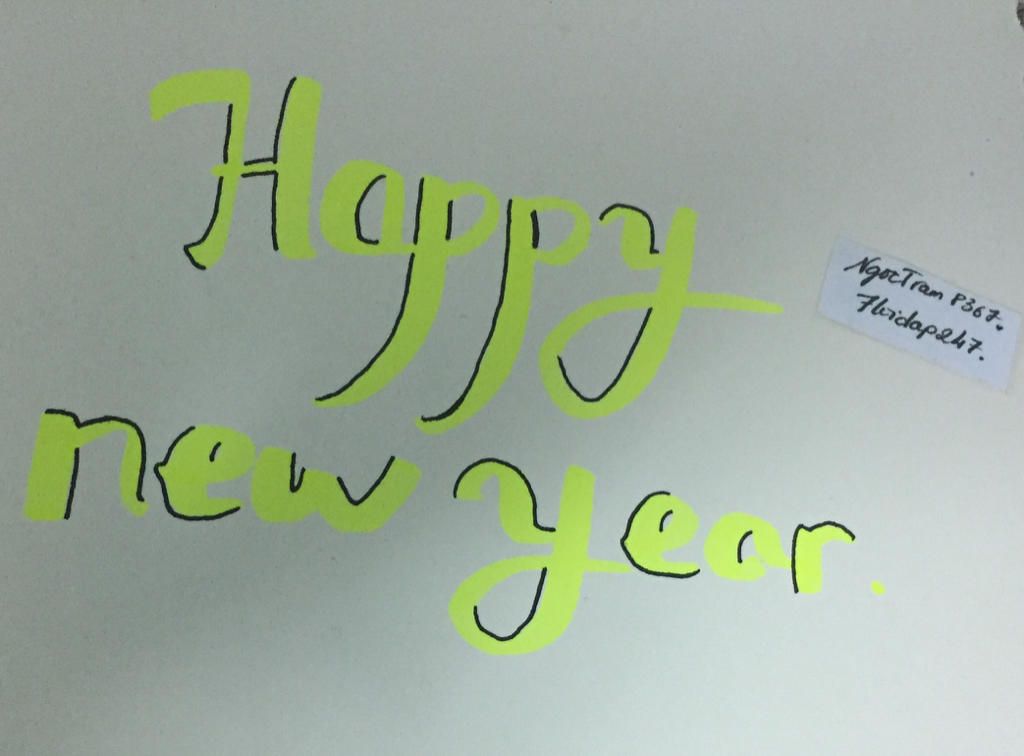 Happy
new year.
NgocTram P367.
7hidap247.